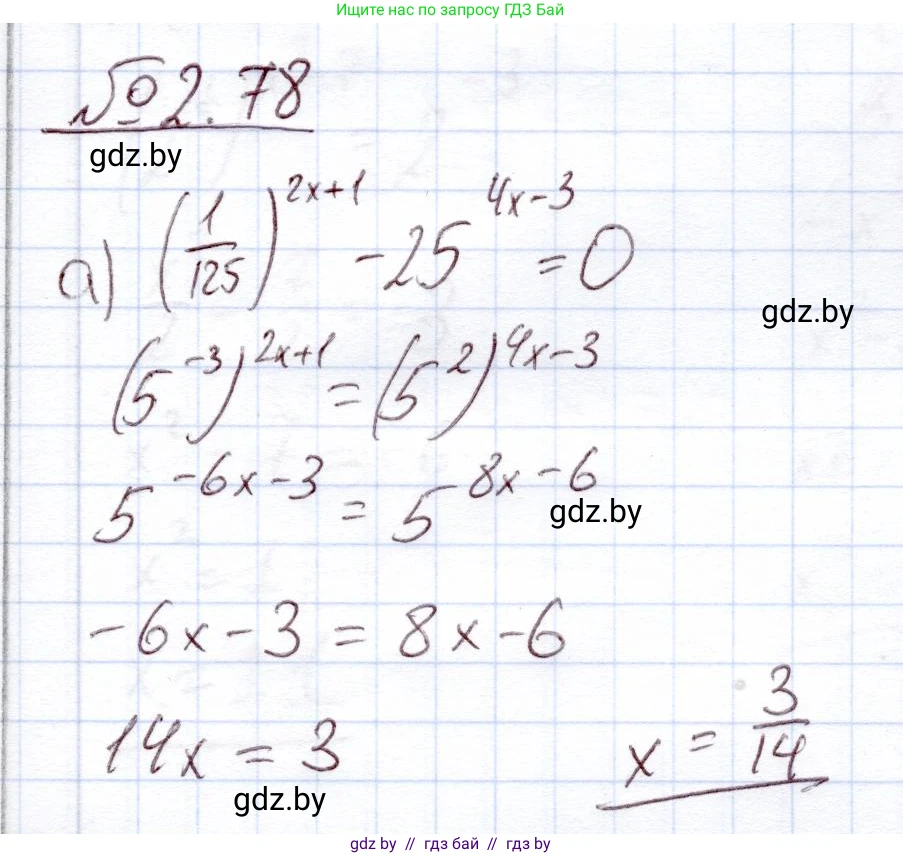 Ищите нас по запросу ГДЗ Бай
№2.78
gdz.by
а) (1/125)^(2x+1) - 25^(4x-3) = 0
gdz.by
(5^(-3))^(2x+1) = (5^2)^(4x-3)
5^(-6x-3) = 5^(8x-6)
gdz.by
-6x-3 = 8x-6
14x = 3
x = 3/14
gdz.by
gdz.by // гдз бай // gdz.by